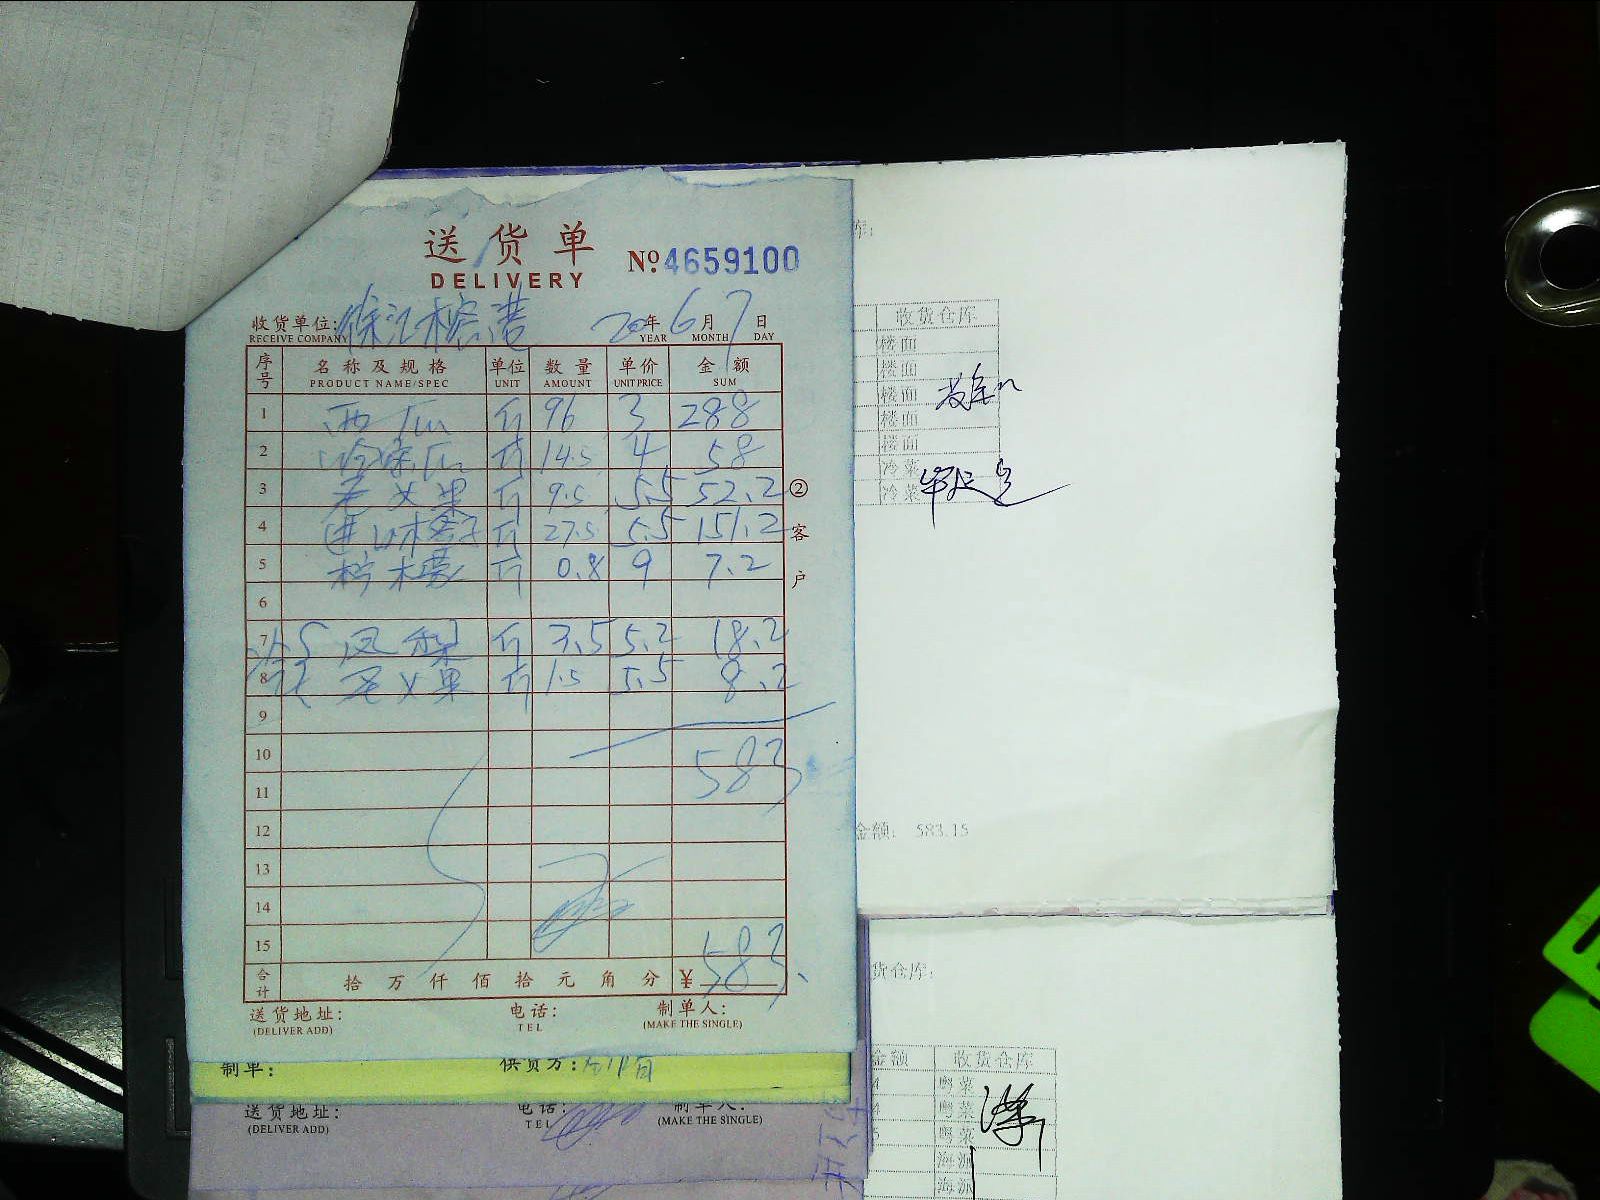 送货单
DELIVERY
№ 4659100
收货单位: 徐汇
RECEIVE COMPANY
20 年 6 月 7 日
YEAR MONTH DAY
序号 名称及规格 单位 数量 单价 金额
PRODUCT NAME/SPEC UNIT AMOUNT UNIT PRICE SUM
1 西瓜 斤 96 3 288
2 哈密瓜 斤 14.5 4 58
3 火果 斤 9.5 5.5 52.2
4 进口 斤 27.5 5.5 151.2
5 柠檬 斤 0.8 9 7.2
6
7 凤梨 斤 3.5 5.2 18.2
8 火果 斤 1.5 5.5 8.2
9
10 583
11
12
13
14
15
合计 拾 万 仟 佰 拾 元 角 分 ¥ 583.
②客户
送货地址: 电话: 制单人:
(DELIVER ADD) TEL (MAKE THE SINGLE)
制单: 供货方:
送货地址: 电话: 制单人:
(DELIVER ADD) TEL (MAKE THE SINGLE)
库:
收货仓库
楼面
楼面
楼面
楼面
楼面
冷菜
冷菜
金额: 583.15
货仓库:
金额 收货仓库
4 粤菜
4 粤菜
5 粤菜
海派
海派